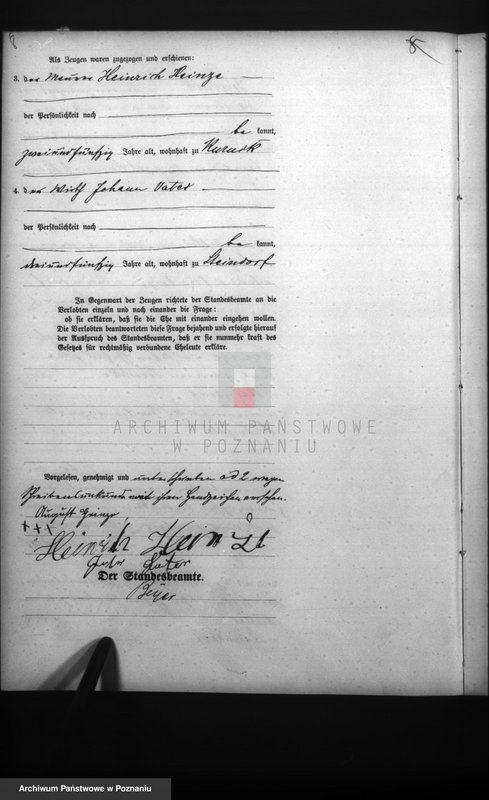 8
8
Als Zeugen waren zugezogen und erschienen:
3. der Maurer Heinrich Heinze
der Persönlichkeit nach
be kannt,
zweiundfünfzig Jahre alt, wohnhaft zu Kurnik
4. der Wirth Johann Vater
der Persönlichkeit nach
be kannt,
dreiundfünfzig Jahre alt, wohnhaft zu Steindorf
In Gegenwart der Zeugen richtete der Standesbeamte an die
Verlobten einzeln und nach einander die Frage:
ob sie erklären, daß sie die Ehe mit einander eingehen wollen.
Die Verlobten beantworteten diese Frage bejahend und erfolgte hierauf
der Ausspruch des Standesbeamten, daß er sie nunmehr kraft des
Gesetzes für rechtmäßig verbundene Eheleute erkläre.
ARCHIWUM PAŃSTWOWE
W POZNANIU
Vorgelesen, genehmigt und unterschrieben ad 2 wegen
Schreibensunkunde mit ihren Handzeichen versehen.
August
+++
Heinrich
Der Standesbeamte.
Beyer
Archiwum Państwowe w Poznaniu